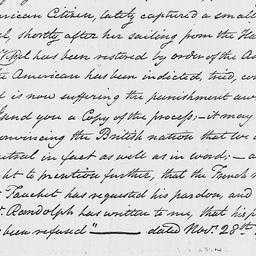 merican Citizen, lately captured a small
el, shortly after her sailing from the Ha
Vessel has been restored by order of the A
he American has been indicted, tried, co
d is now suffering the punishment aw
send you a Copy of the process;—it may
convincing the British nation that we a
eutral in fact as well as in word;—a
ht to mention further, that the French m
r Fauchet has requested his pardon, and
r. Randolph has written to me, that his p
been refused"——— dated Novr. 28th